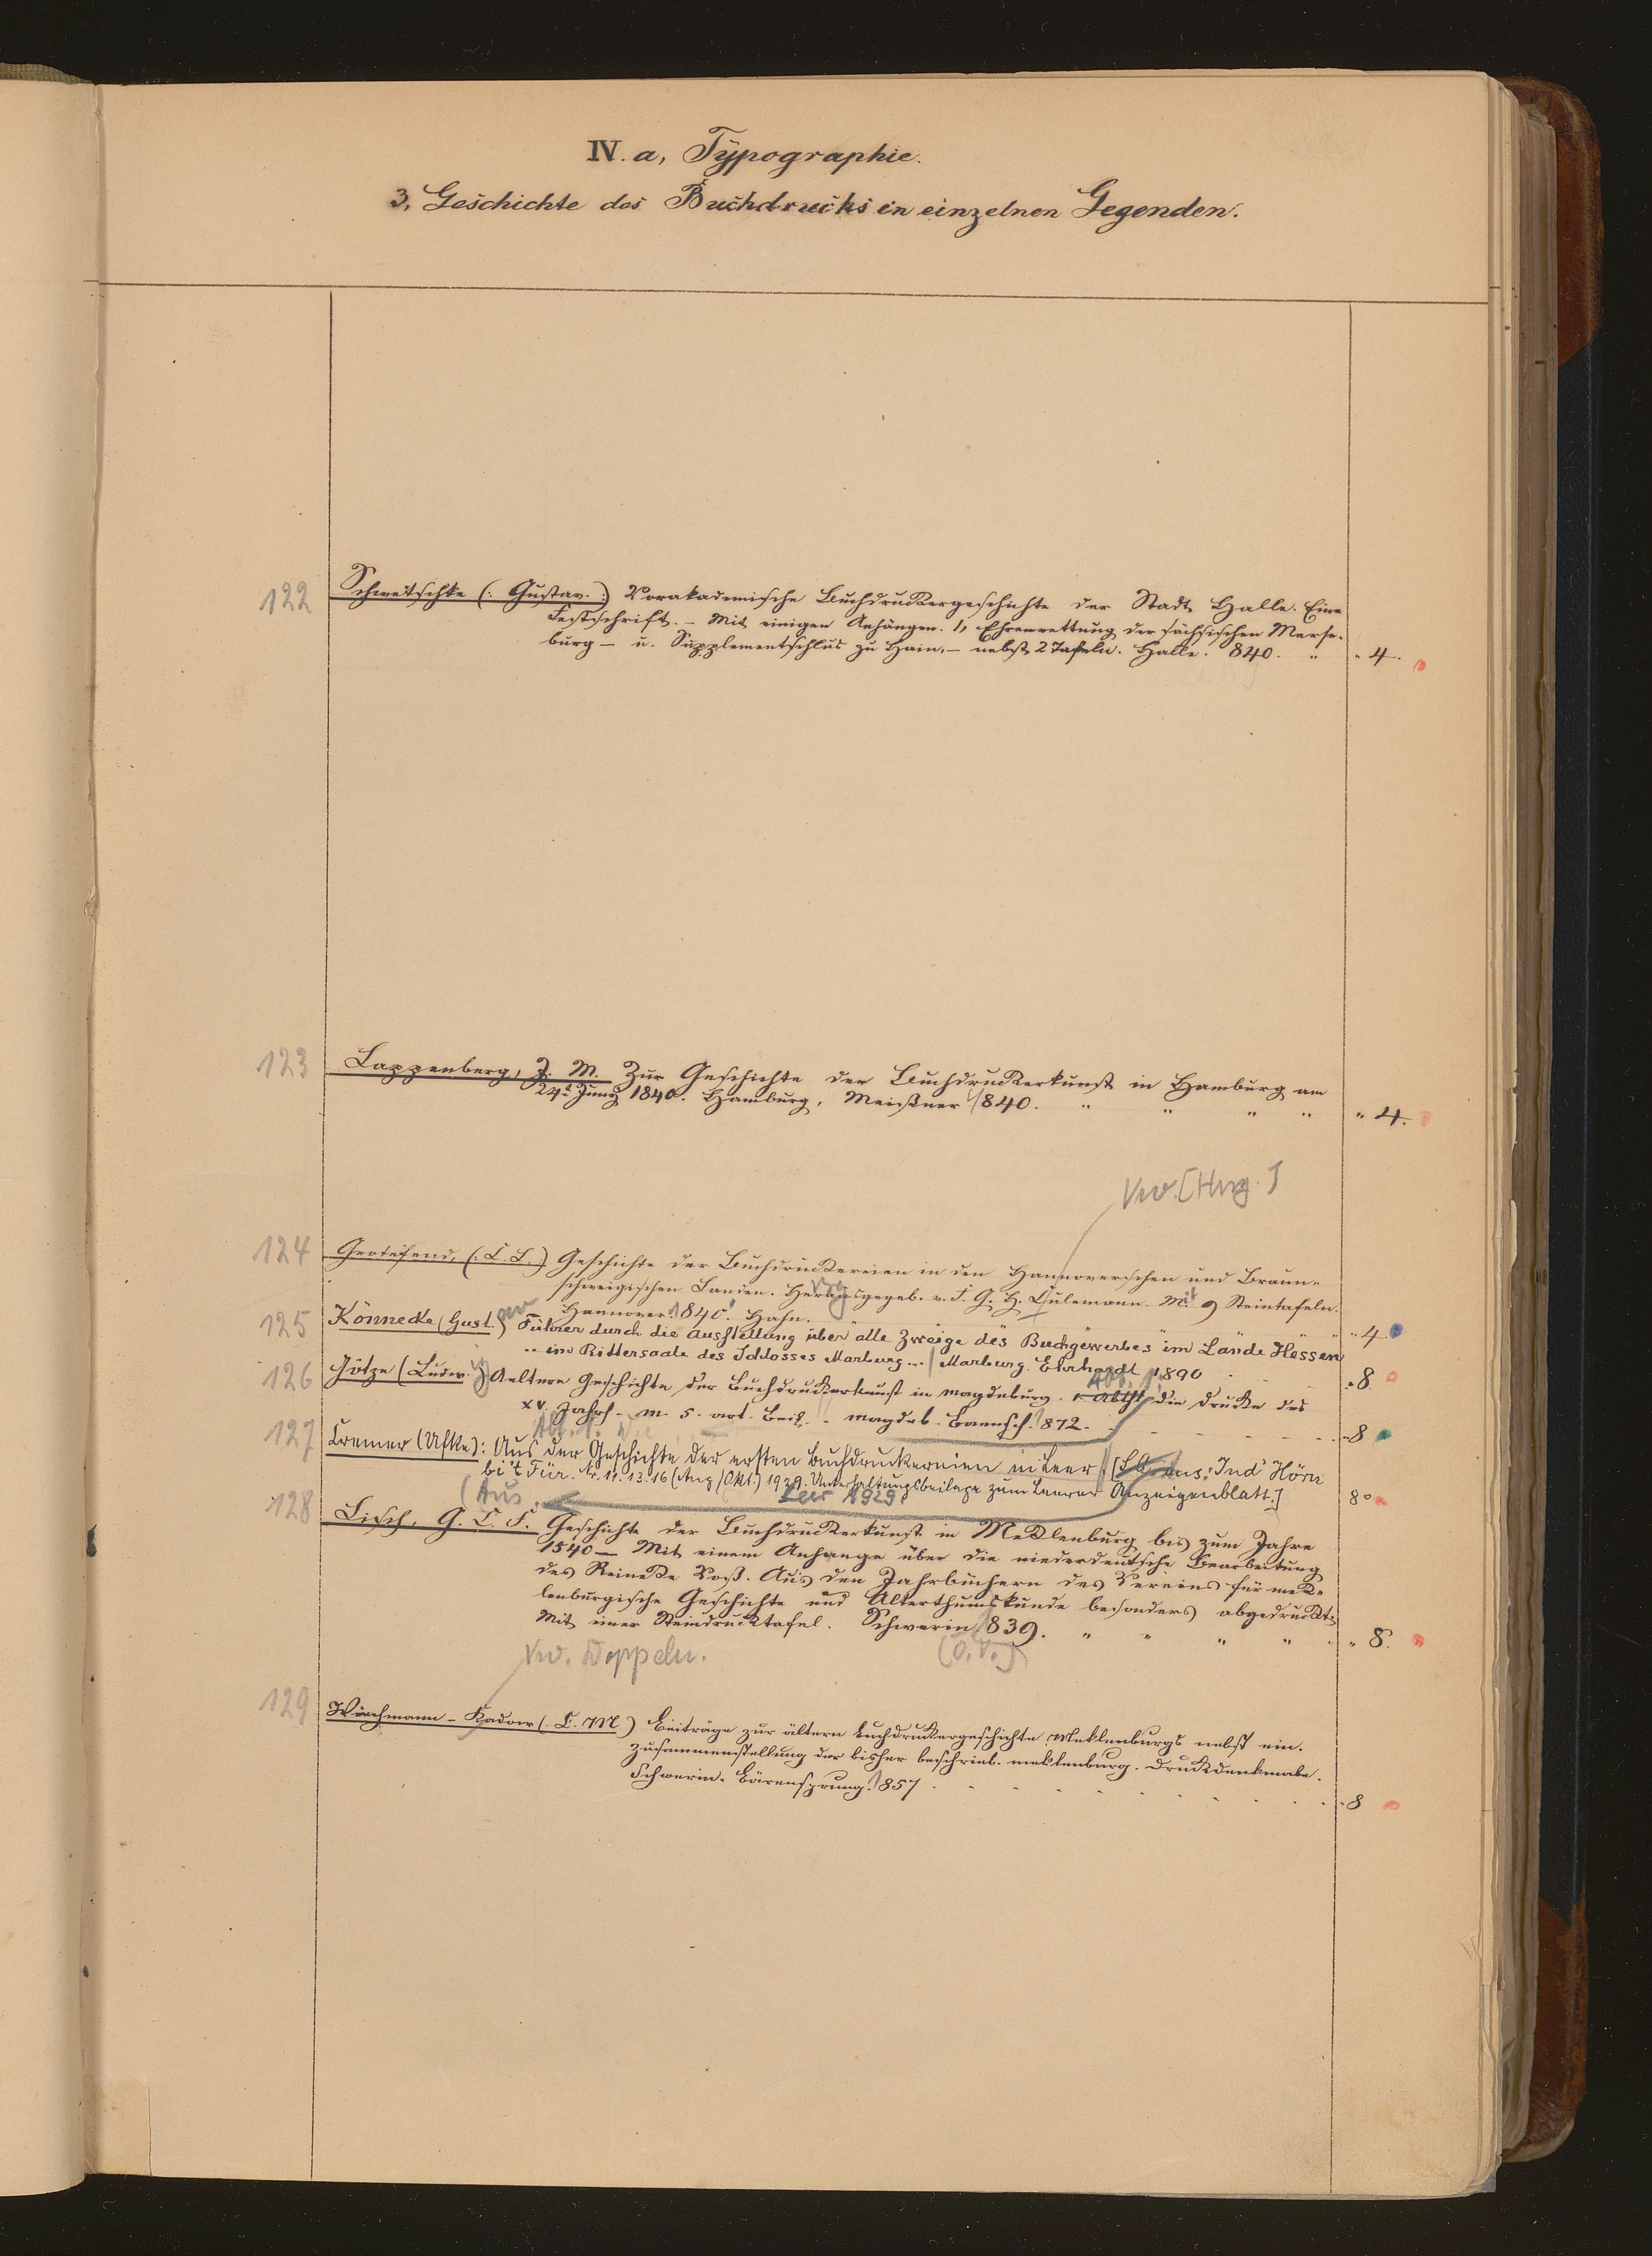 IV. a, Typographie.
3, Geschichte des Buchdrucks in einzelnen Gegenden.
122
Schwetschke (: Gustav. :) Vorakademische Buchdruckergeschichte der Stadt Halle. Eine
Festschrift. – Mit einigen Anhängen. 1, Ehrenrettung der sächsischen Merse-
burg – u. Supplementschluß zu Hain. – nebst 2 Tafeln. Halle. 840. " " 4.
123
Lappenberg, J. M. Zur Geschichte der Buchdruckerkunst in Hamburg am
24t Juny 1840. Hamburg, Meißner 1840. " " " " " 4.
Vw. [Hrsg.]
124
Grotefend, (: C. L. :) Geschichte der Buchdruckereien in den Hannoverschen und Braun-
schweigischen Landen. Herausgegeb. v. F. G. H. Culemann. Mit 9 Steintafeln.
Hannover 1840. Hahn. " 4
125
Könnecke (Gust.) Führer durch die Ausstellung über alle Zweige des Buchgewerbes im Lande Hessen
.. im Rittersaale des Schlosses Marburg ... Marburg. Ehrhardt 1890 " 8
126
Götze (Ludw.) Aeltere Geschichte der Buchdruckerkunst in Magdeburg. 1. Abth. die Drucke des
XV. Jahrh. m. 5. art. Beil. - Magdeb. Baensch. 1872. - 8
127
Cremer (Ufke): Aus der Geschichte der ersten Buchdruckereien in Leer. [ Aus: Ind' Hörn
bi't Für. Nr. 11. 13. 16 (Aug/Okt.) 1929. Unterhaltungsbeilage zum Leerer Anzeigenblatt.] 8°
(Aus Leer 1929
128
Lisch, G. C. F. Geschichte der Buchdruckerkunst in Meklenburg bis zum Jahre
1540 – Mit einem Anhange über die niederdeutsche Bearbeitung
des Reineke Voß. Aus den Jahrbüchern des Vereins für mek-
lenburgische Geschichte und Alterthumskunde besonders abgedruckt
Mit einer Steindrucktafel. Schwerin 1839. " " " " " 8.
Vw. Doppeln.
(O. V.)
129
Wiechmann - Kadow (. C. M) Beiträge zur ältern Buchdruckergeschichte Meklenburgs nebst ein.
Zusammenstellung der bisher beschrieb. meklenburg. Druckdenkmale.
Schwerin. Bärensprung. 1857 - 8